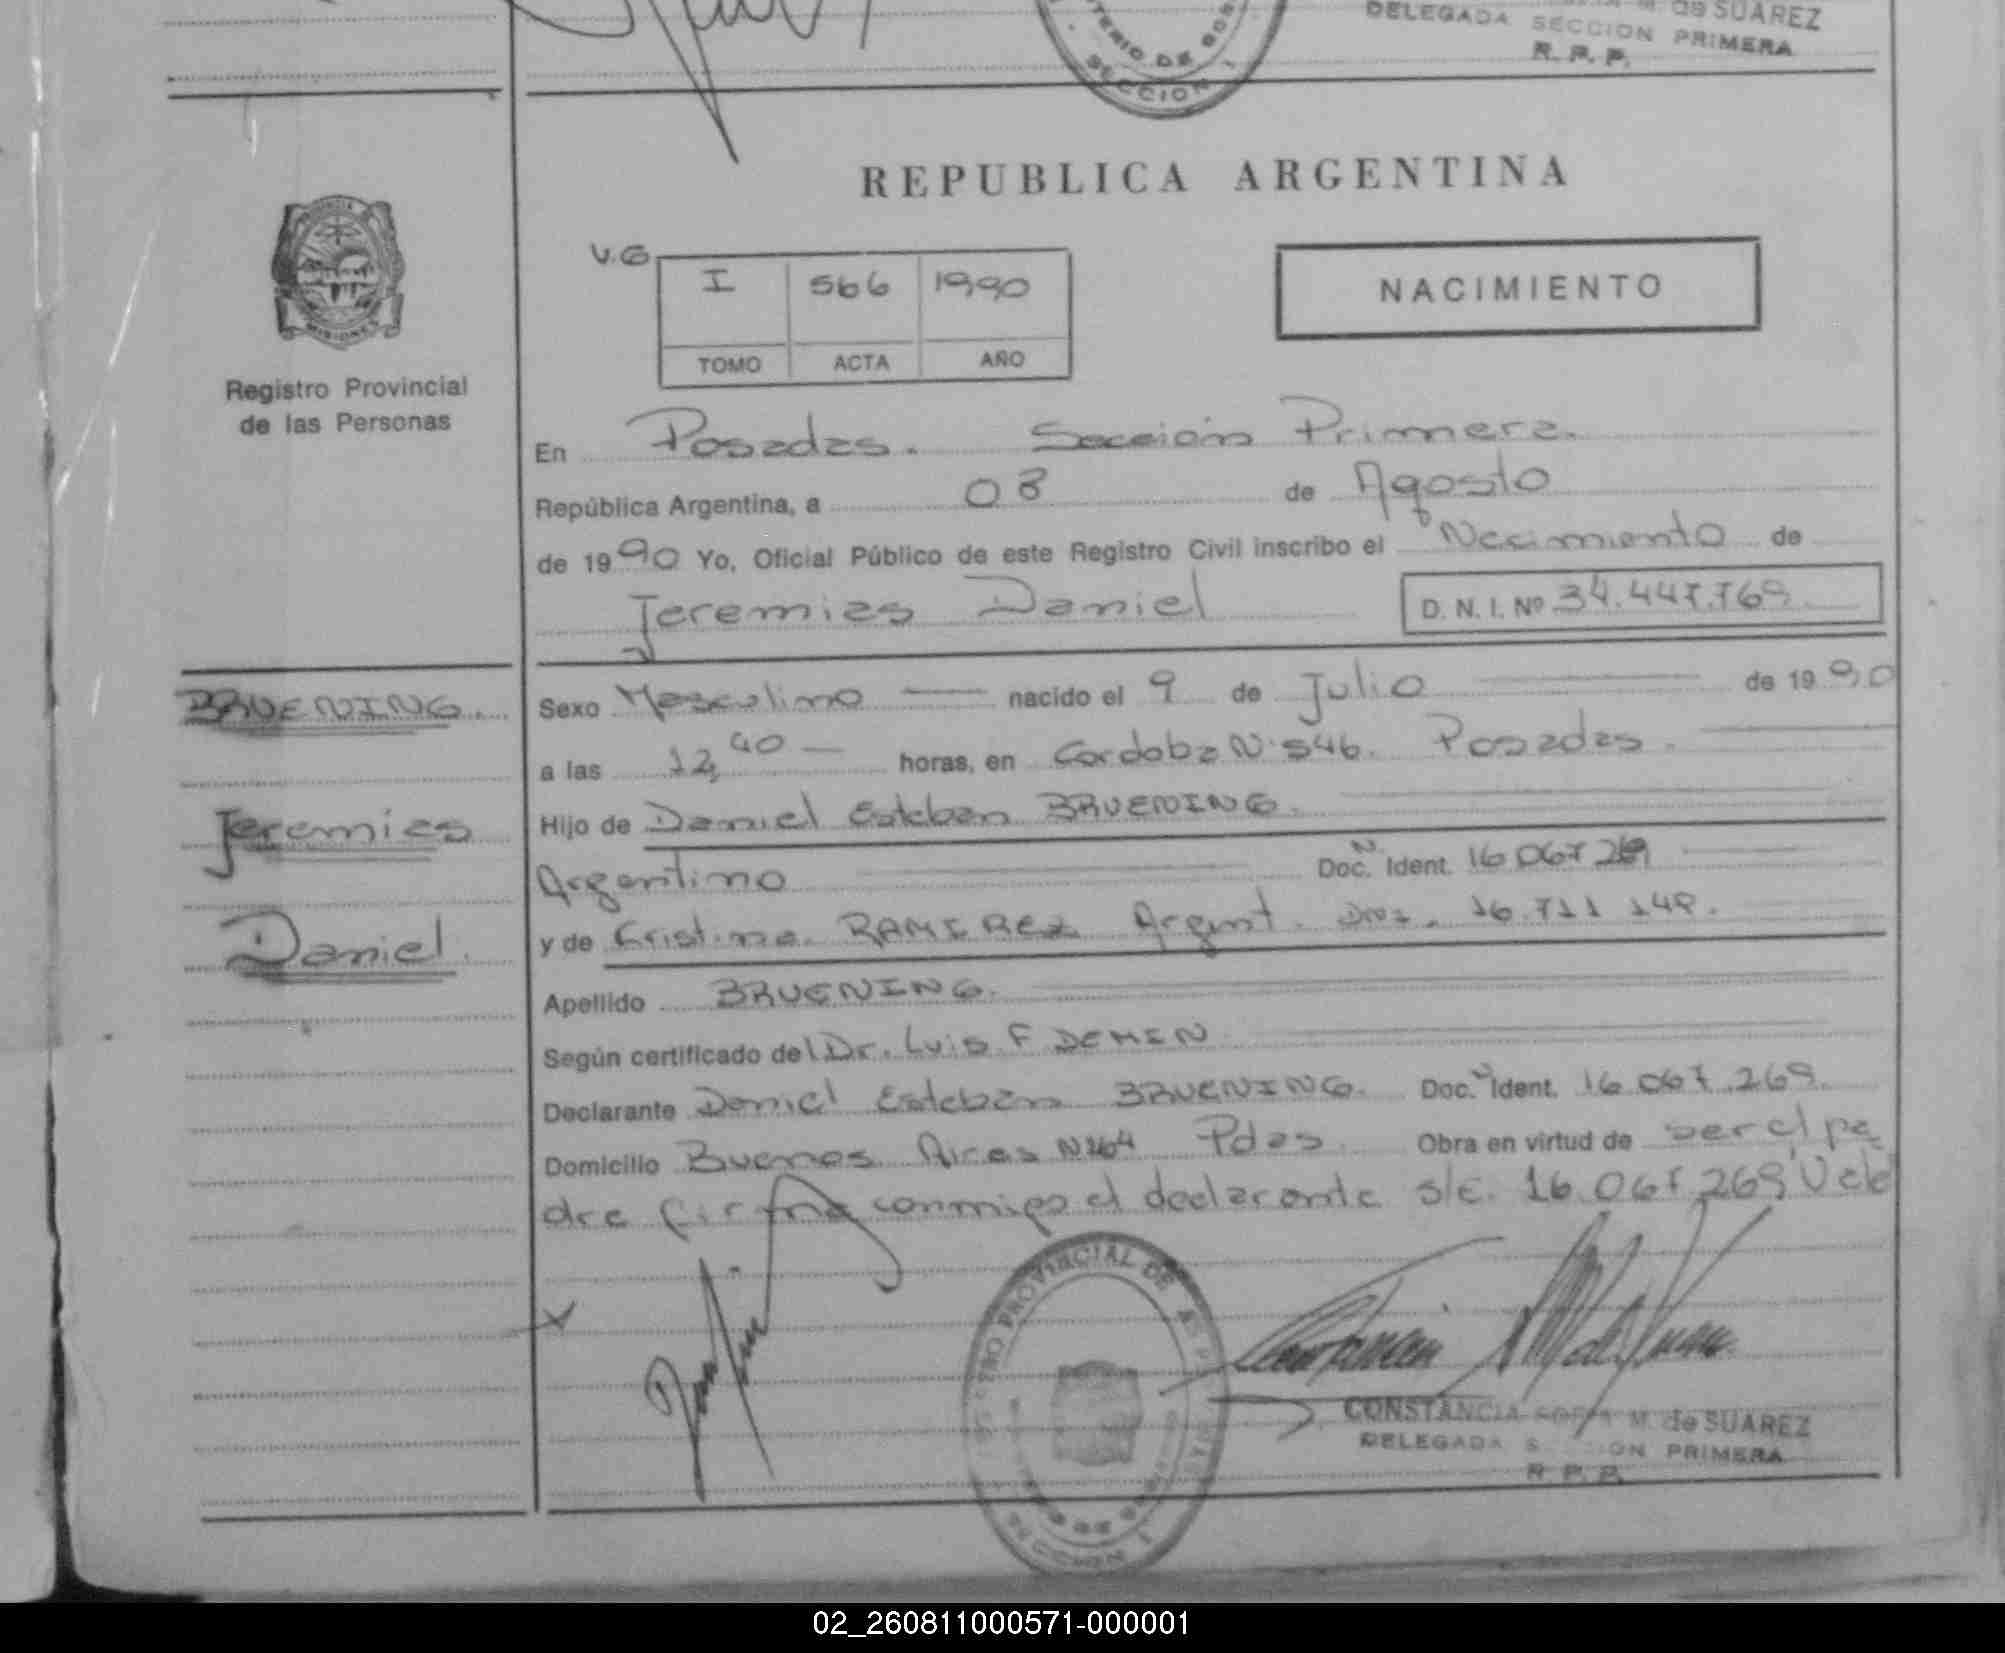 de SUAREZ
DELEGADA SECCION PRIMERA
R. P. P.
SECCION 1
REPUBLICA ARGENTINA
PROVINCIA
MISIONES
Registro Provincial
de las Personas
V.G
I 566 1990
TOMO ACTA AÑO
NACIMIENTO
En Posadas. Sección Primera.
República Argentina, a 08 de Agosto
de 1990 Yo, Oficial Público de este Registro Civil inscribo el Nacimiento de
Jeremias Daniel D. N. I. Nº 34.447.769
BRUENING.
Jeremias
Daniel.
Sexo Masculino nacido el 9 de Julio de 1990
a las 12,40 horas, en Cordoba N° 546. Posadas.
Hijo de Daniel Esteban BRUENING.
Argentino Doc. N Ident. 16 067 269
y de Cristina RAMIREZ Argent. DNI. 16.711 148.
Apellido BRUENING.
Según certificado del Dr. Luis F DEMEN
Declarante Daniel Esteban BRUENING. Doc. N Ident. 16 067.269.
Domicilio Buenos Aires N 264 Pdas. Obra en virtud de ser el pa
dre firma conmigo el declarante s/e. 16.067.269, Vale
X
PROVINCIAL DE
SECCION 1
CONSTANCIA SOFIA M. de SUAREZ
DELEGADA SECCION PRIMERA
R. P. P.
02_260811000571-000001